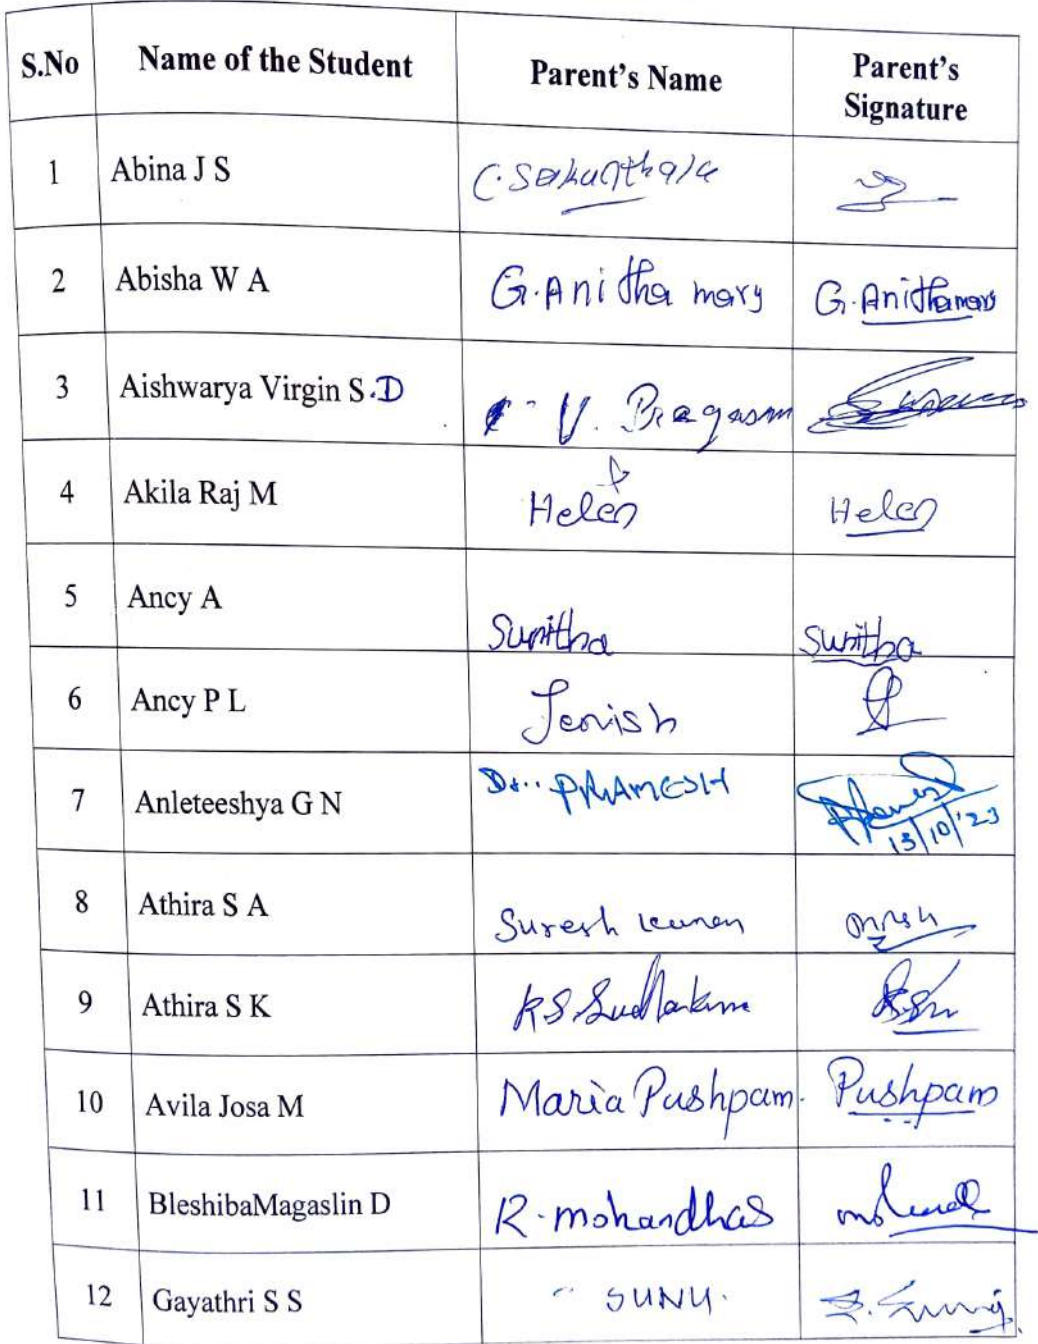 S.No Name of the Student Parent's Name Parent's Signature
1 Abina J S C. Sakunthala
2 Abisha W A G. Anitha mary G. Anithamary
3 Aishwarya Virgin S.D V. Pragasm
4 Akila Raj M Helen Helen
5 Ancy A Sunitha Sunitha
6 Ancy P L Jenish
7 Anleteeshya G N 13/10/'23
8 Athira S A Suresh kumar
9 Athira S K
10 Avila Josa M Maria Pushpam. Pushpam
11 BleshibaMagaslin D R. mohandhas
12 Gayathri S S SUNU.